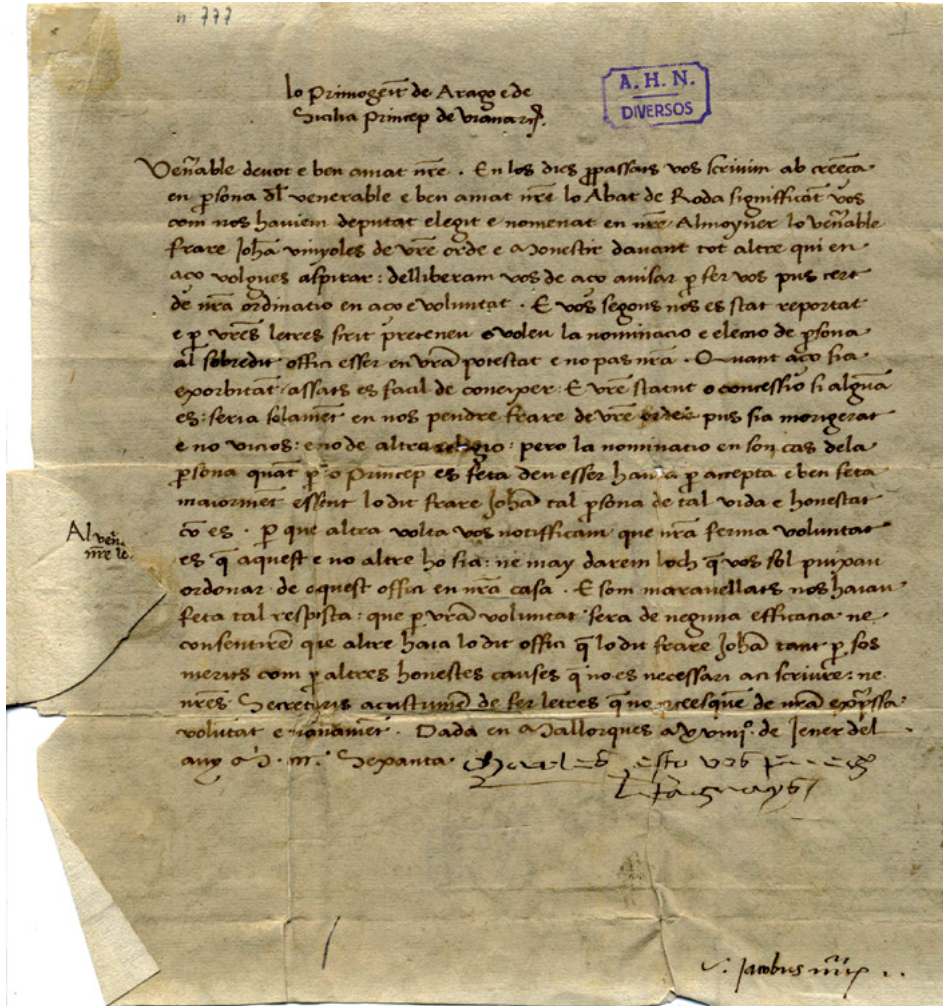 n 777
lo Primogeit de Arago e de
Sicilia Princep de viana
A. H. N.
DIVERSOS
Veñable devot e ben amat nr̃e . En los dies ppassats vos scrivim ab creeca
en psona dl venerable e ben amat nr̃e lo Abat de Roda significat vos
com nos haviem deputat elegit e nomenat en nr̃e Almoyner lo veñable
frare Johã vinyoles de vr̃e orde e monestir davant tot altre qui en
aço volgues aspirar : delliberam vos de aço avisar p fer vos pus cert
de nr̃a ordinatio en aço e voluntat . E vos segons nos es stat reportat
e p vr̃es letres scrit preteneu e voleu la nominacio e eleccio de psona
al sobredit offici esser en vr̃a potestat e no pas nr̃a . Quant aço sia
exorbitãt assats es facil de coneixer . E vr̃e statut o concessio si alguã
es : seria solamẽt en nos pendre frare de vr̃e orde pus sia morigerat
e no vicios : e no de altra religio : pero la nominatio en son cas dela
psona quãt p lo Princep es feta deu esser hauda p accepta e ben feta
maiormẽt essent lo dit frare Johã tal psona de tal vida e honestat
cõ es . p que altra volta vos notifficam que nr̃a ferma voluntat
Al veñ.
nr̃e lo
es q̃ aquest e no altre ho sia : ne may darem loch q̃ vos sol puixau
ordonar de aquest offici en nr̃a casa . E som maravellats nos haiau
feta tal resposta : que p vr̃a voluntat sera de neguna efficacia ne
consentirẽ que altre haia lo dit offici q̃ lo dit frare Johã tant p sos
merits com p altres honestes causes q̃ no es necessari aci scriure : ne
nr̃es Secretaris acustumẽ de fer letres q̃ no de nr̃a expssa
volutat e manamẽt . Dada en Mallorques a xviiij. de Jener del
any M. Sexanta . Charles
Jacobus